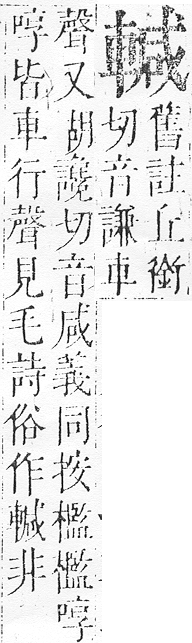 舊註丘銜
切音謙車
聲又胡讒切音咸義同按檻檻啍
啍皆車行聲見毛詩俗作非